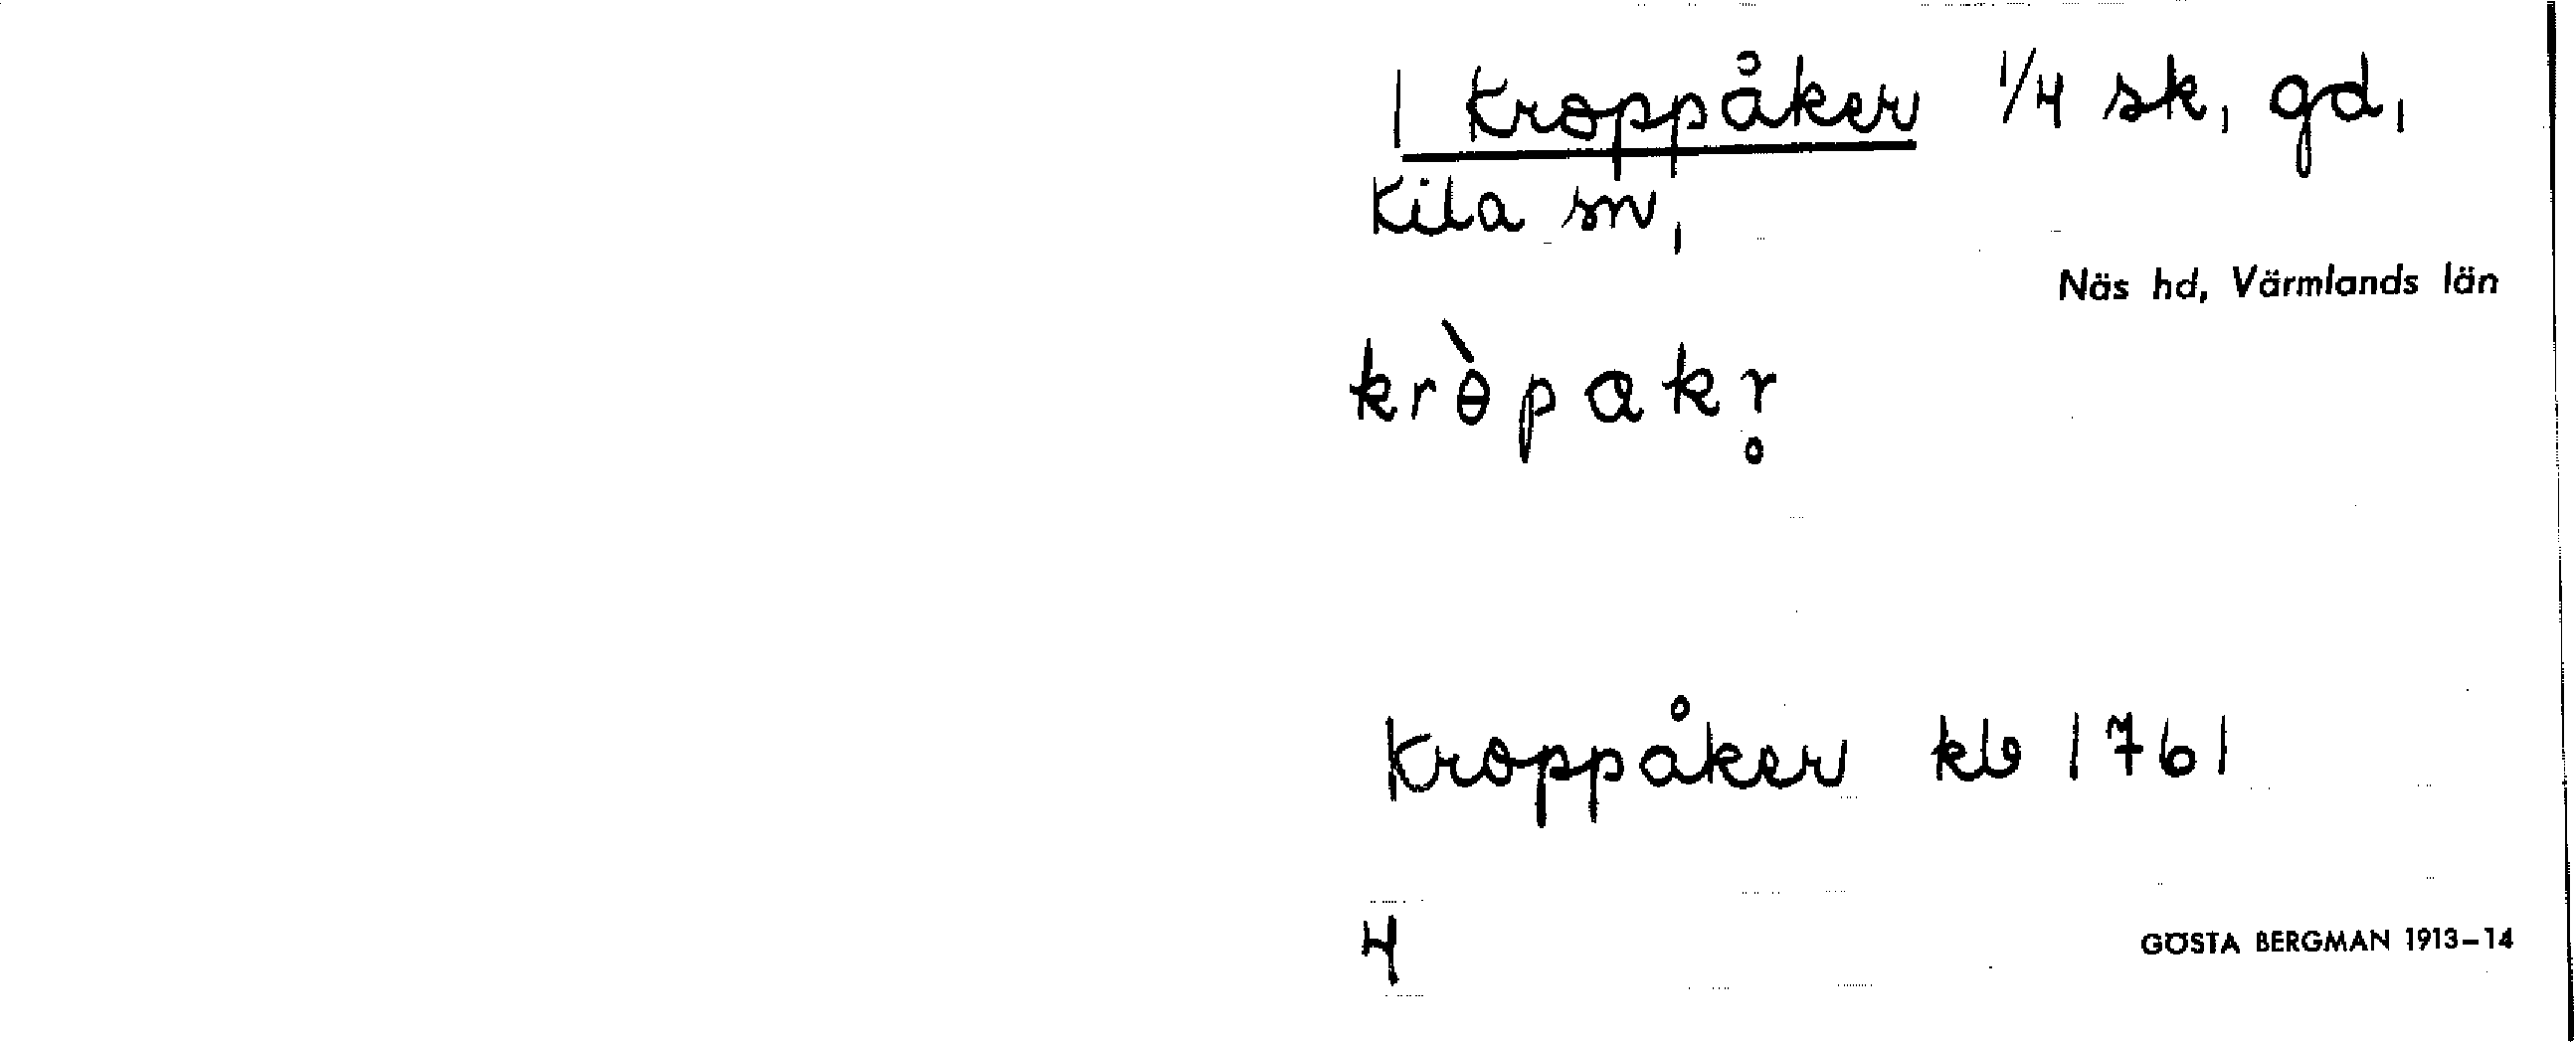 1 Kroppåker 1/4 sk, gd,
Kila sn,
Näs hd, Värmlands län
krɵ̀pakr̥
Kroppåker kb 1761
4
GÖSTA BERGMAN 1913–14